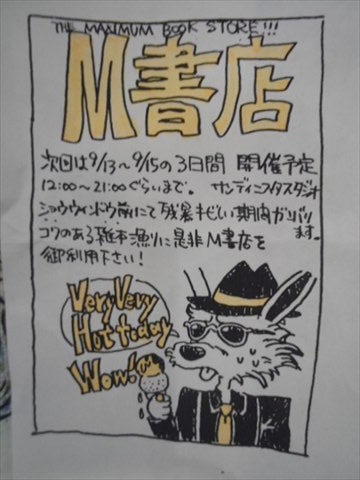 THE MAXIMUM BOOK STORE!!!
M書店
次回は9/13～9/15の3日間 開催予定
12:00～21:00ぐらいまで。 サンディニスタスタジオ
ショウウィンドウ前にて残暑キビしい期内ガンバリます。
コクのある雑本漁りに是非M書店を
御利用下さい！
Very Very
Hot today
Wow!